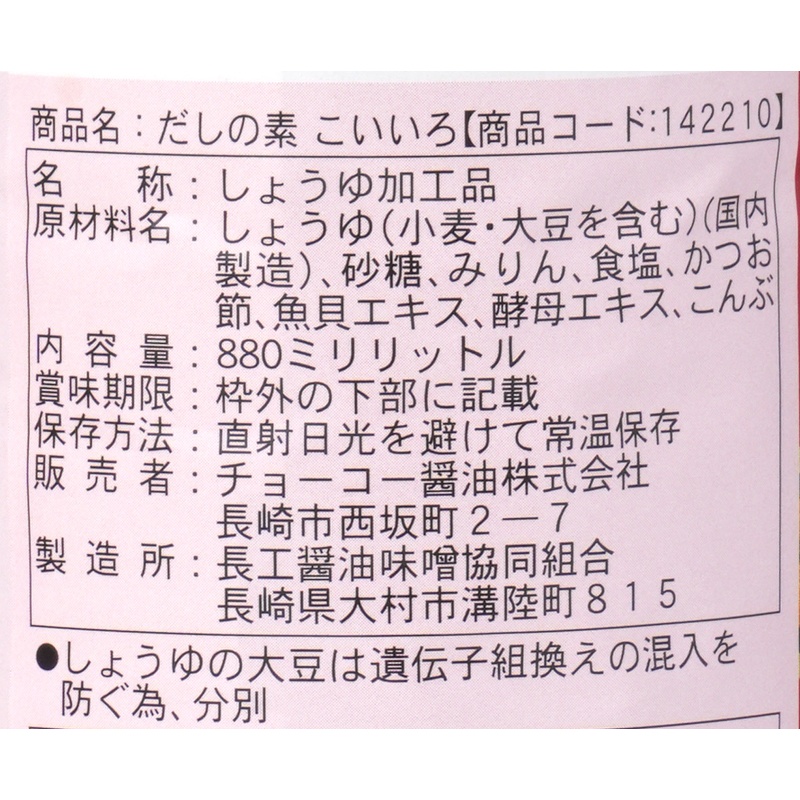 商品名：だしの素 こいいろ【商品コード:142210】
名称：しょうゆ加工品
原材料名：しょうゆ(小麦・大豆を含む)(国内
製造)、砂糖、みりん、食塩、かつお
節、魚貝エキス、酵母エキス、こんぶ
内容量：880ミリリットル
賞味期限：枠外の下部に記載
保存方法：直射日光を避けて常温保存
販売者：チョーコー醤油株式会社
長崎市西坂町２－７
製造所：長工醤油味噌協同組合
長崎県大村市溝陸町８１５
●しょうゆの大豆は遺伝子組換えの混入を
防ぐ為、分別